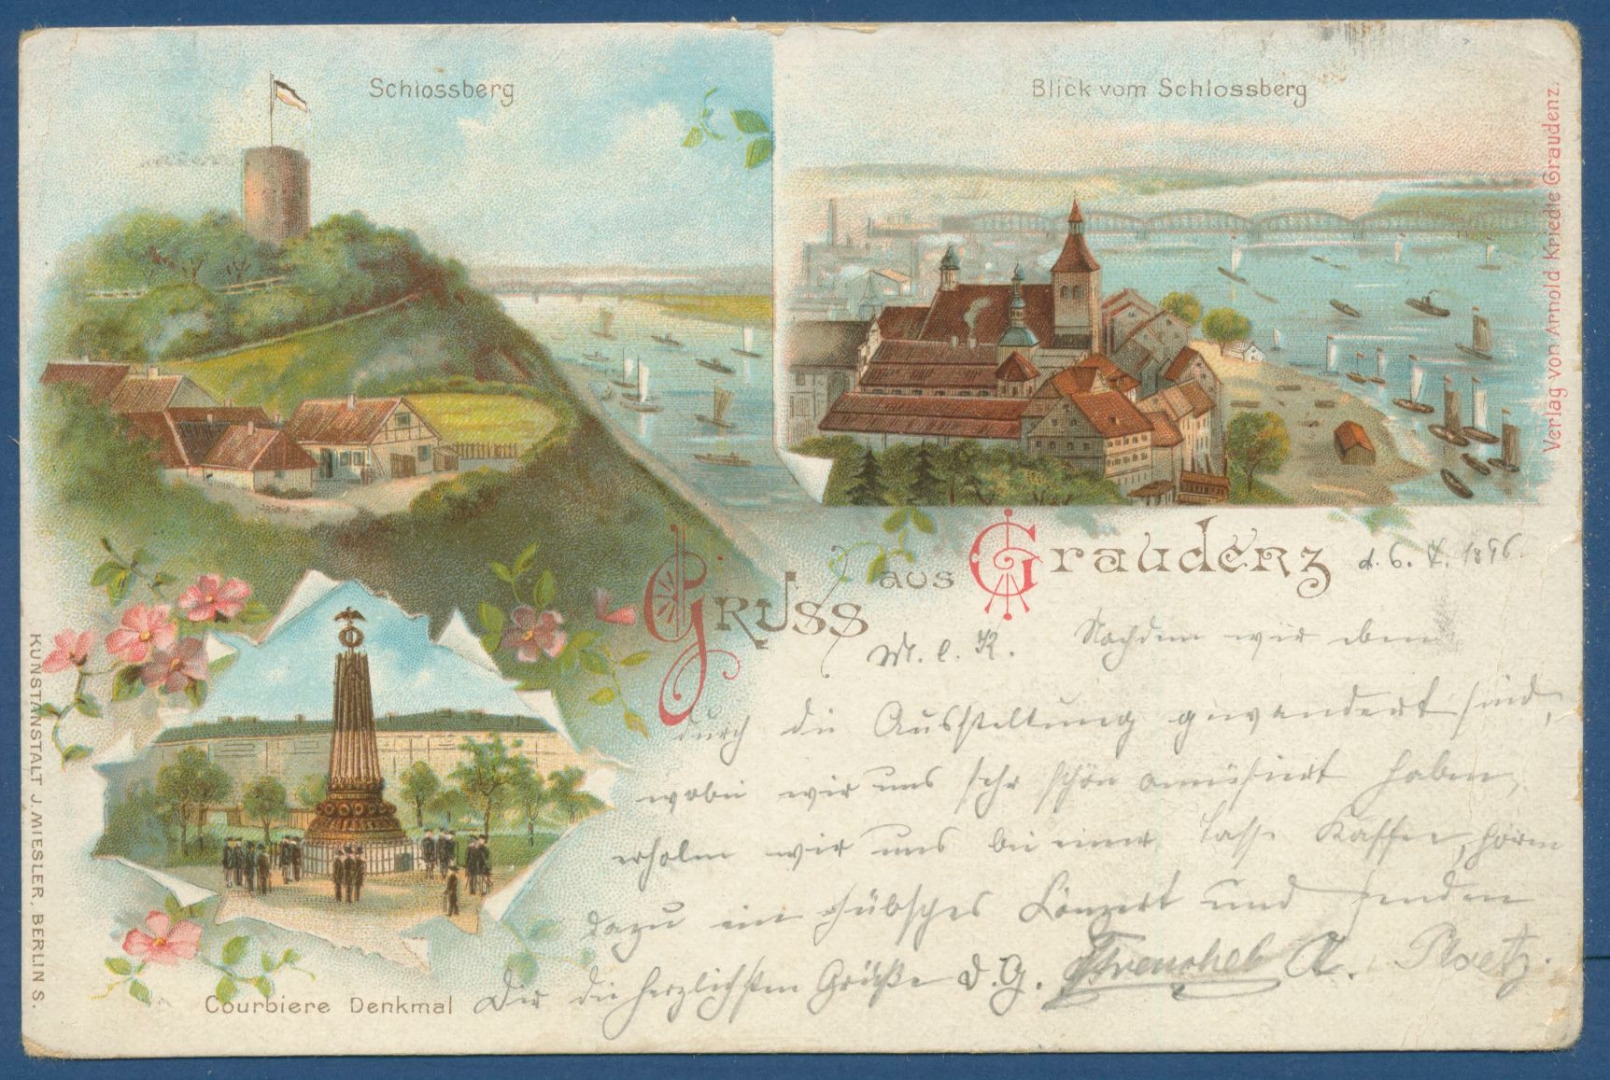 Schlossberg
Blick vom Schlossberg
Verlag von Arnold Kriedte Graudenz.
Gruss aus Graudenz d. 6. X. 1896.
M. l. K. Nachdem wir eben
durch die Ausstellung gewandert sind,
wobei wir uns sehr schön amüsiert haben,
erholen wir uns bei einer Tasse Kaffee, hören
dazu ein hübsches Konzert und senden
Dir die herzlichsten Grüße D. G. A. Ploetz.
Courbiere Denkmal
KUNSTANSTALT J. MIESLER, BERLIN S.